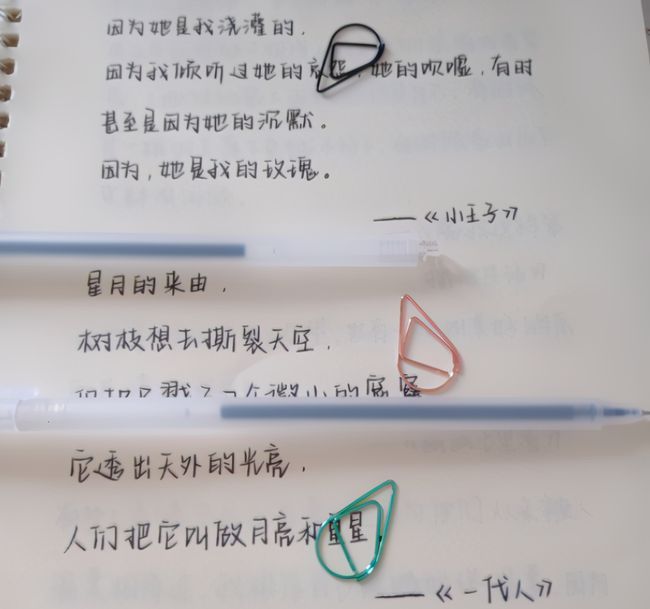 因为她是我浇灌的，
因为我倾听过她的哀怨，她的吹嘘，有时
甚至是因为她的沉默。
因为，她是我的玫瑰。
——《小王子》
星月的来由，
树枝想去撕裂天空，
了几个微小的窟窿
它透出天外的光亮，
人们把它叫做月亮和星星
——《一代人》